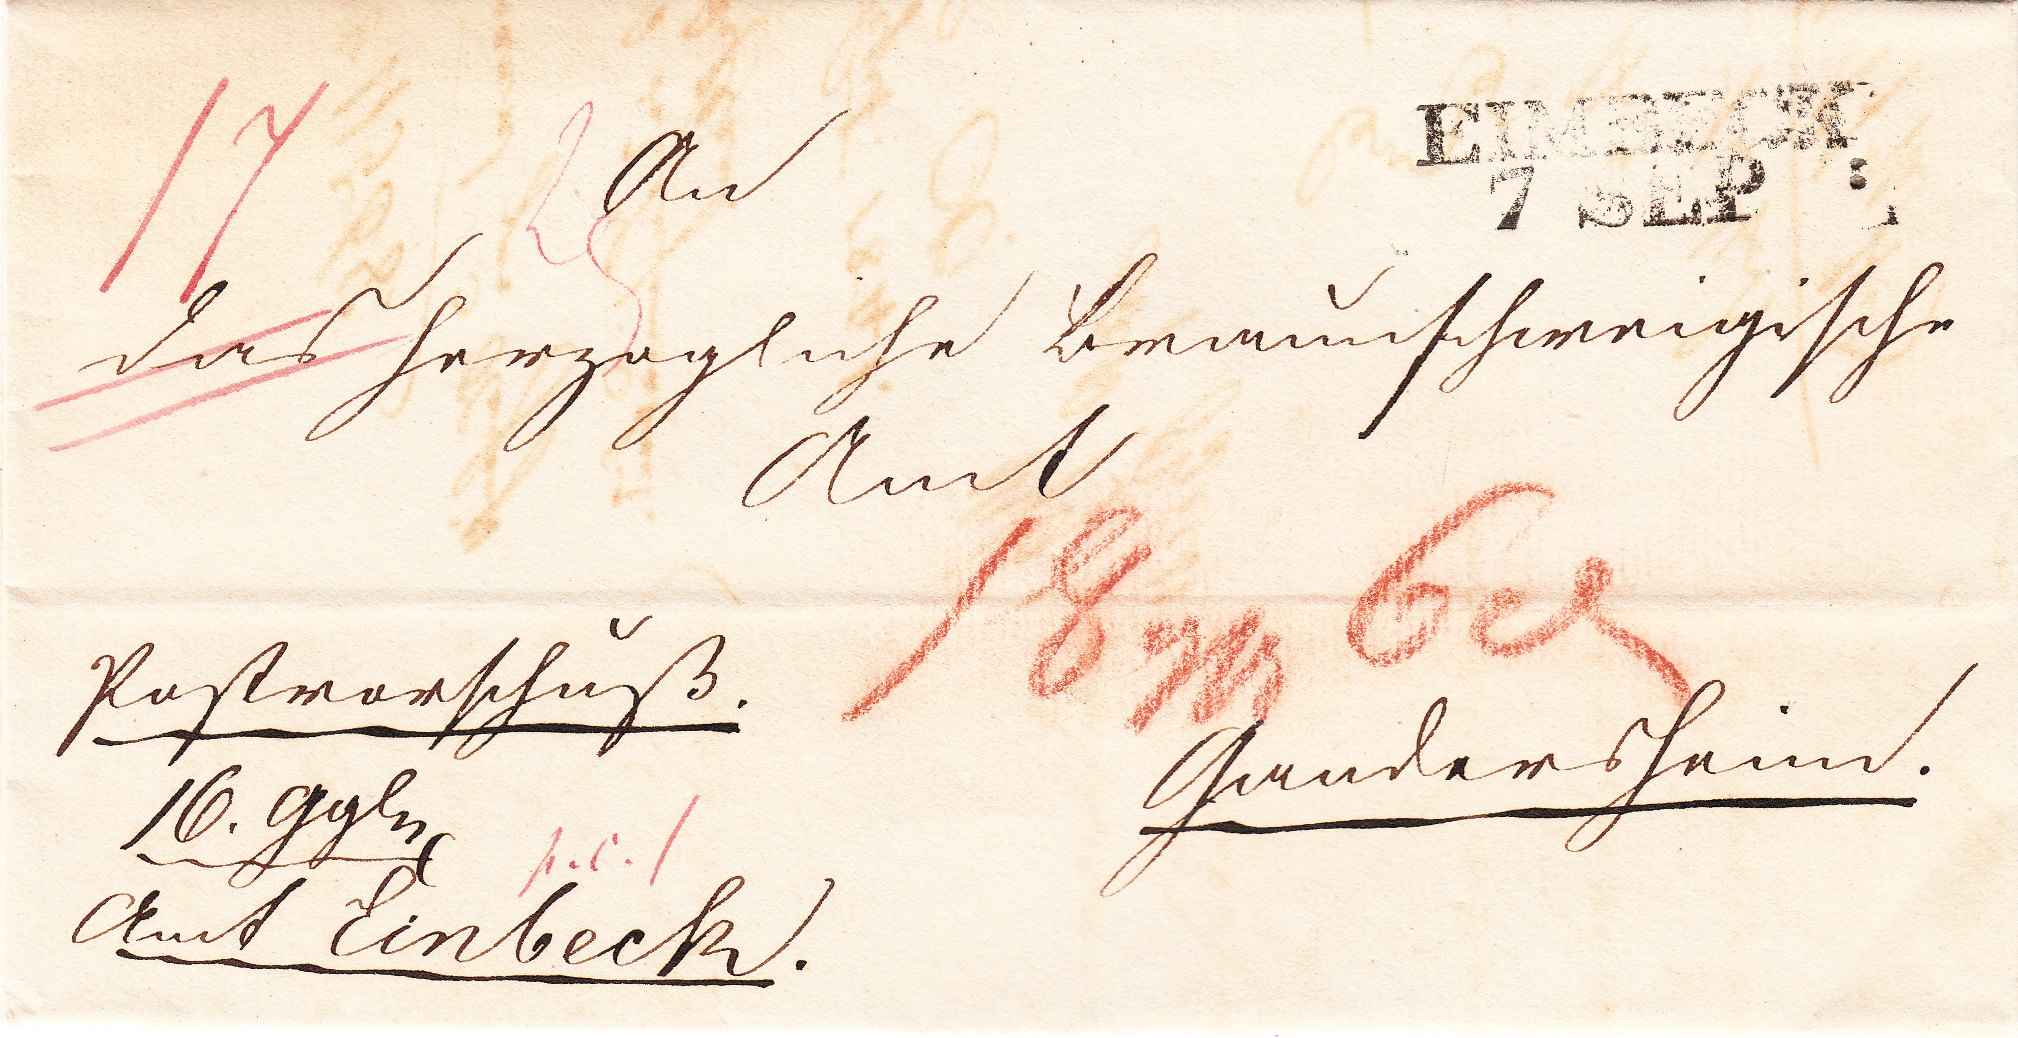 EIMBECK
7 SEP
17
An
das Herzogliche Braunschweigische
Amt
18 6
Postvorschuß.
Gandersheim.
16. Ggl
Amt Einbeck.